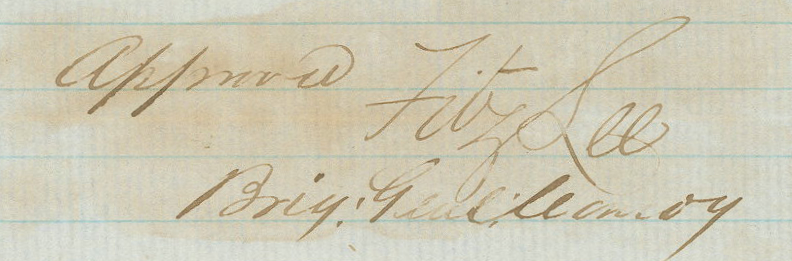 Approved Fitz Lee
Brig: Genl: Comdg